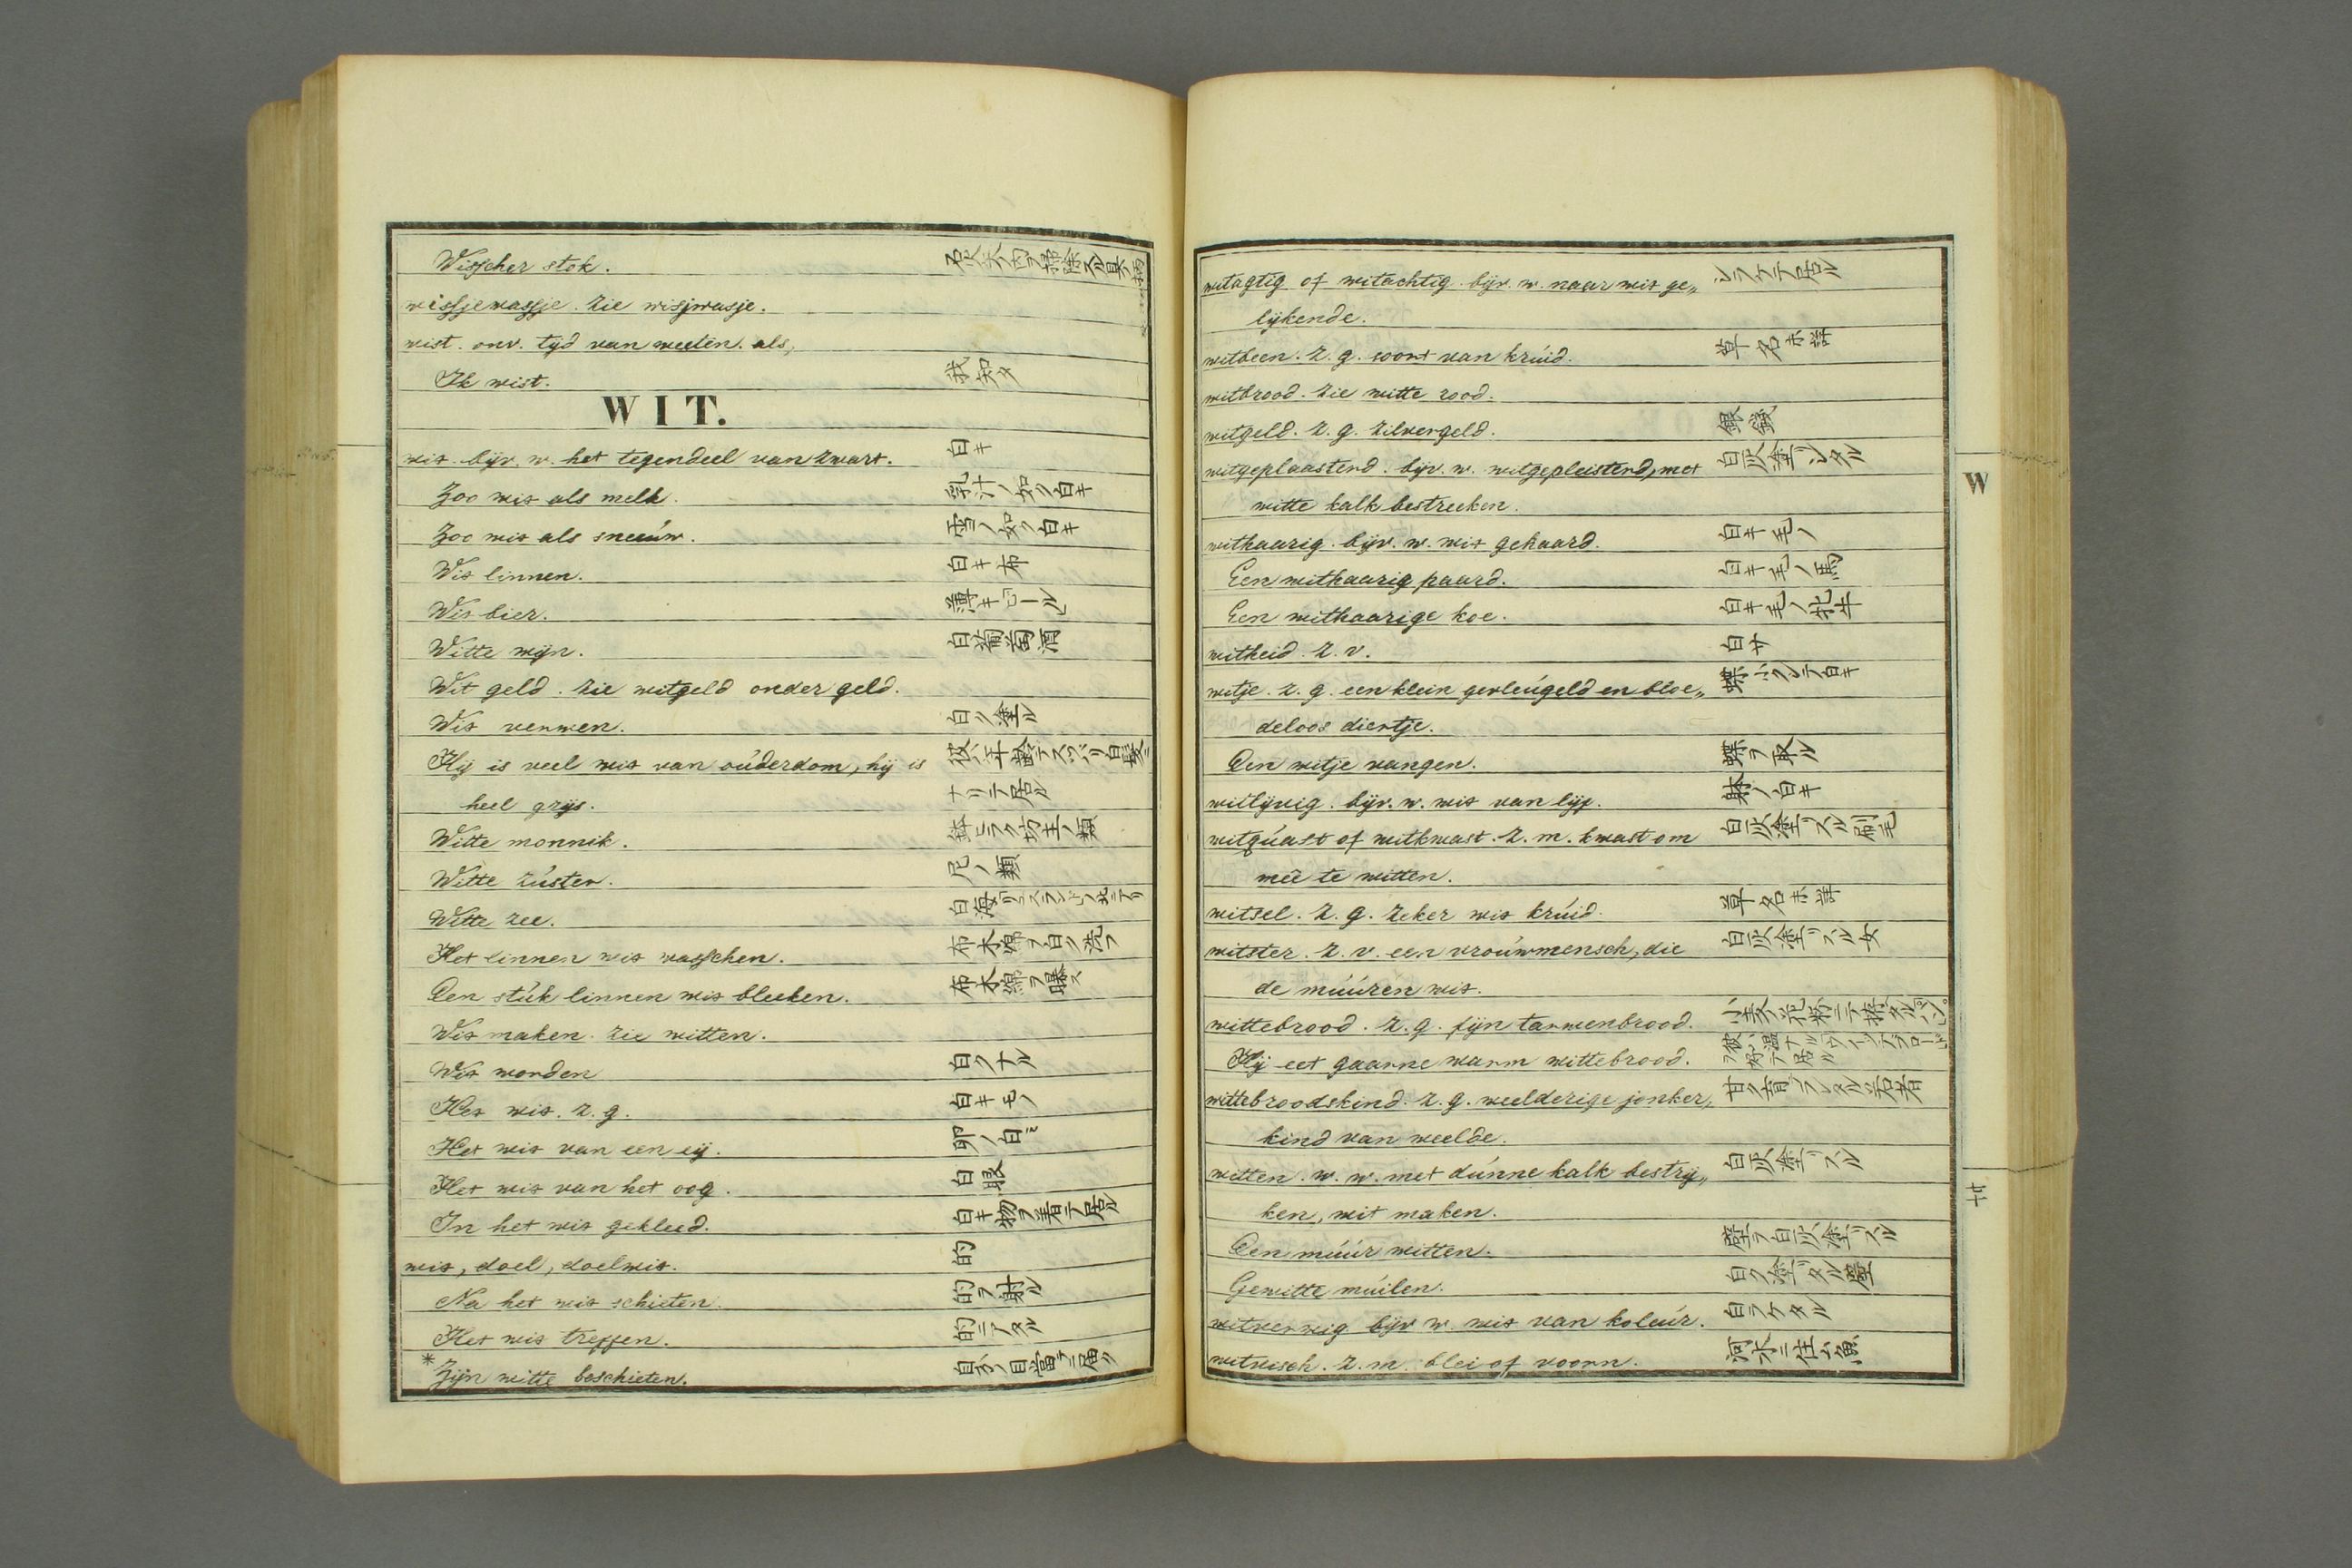 Wisscher stok.
wissjewassje. Zie wisjwasje.
wist. onv. tyd van weeten. als,
Ik wist. 我知タ
WIT.
wit. bijv. w. het tegendeel van zwart. 白キ
Zoo wit als melk. 乳汁ノ如ク白キ
Zoo wit als sneeúw. 雪ノ如ク白キ
Wit linnen. 白キ布
Wit bier. 薄キビール
Witte wijn. 白葡萄酒
Wit geld. Zie witgeld onder geld.
Wit verwen. 白ク塗ル
Hij is veel wit van oúderdom, hij is 彼ハ年齢テスツパリ白髪ニ
heel grijs. ナリテ居ル
Witte monnik. 坊主ノ類
Witte zúster. 尼ノ類
Witte zee. 白海
Het linnen wit wasschen. 布木綿ヲ白ク洗フ
Een stúk linnen wit bleeken. 布木綿ヲ曝ス
Wit maken. Zie witten.
Wit worden 白クナル
Het wit. z. g. 白キモノ
Het wit van een eij. 卵ノ白ミ
Het wit van het oog. 白眼
In het wit gekleed. 白キ物ヲ着テ居ル
wit, doel, doelwit. 的
Na het wit schieten. 的ヲ射ル
Het wit treffen. 的ニアタル
* Zijn witte beschieten. 自分ノ目當ニ届ク
witagtig of witachtig. bijv. w. naar wit ge„ シラケテ居ル
lijkende.
witbeen. z. g. soort van krúid. 草ノ名未詳
witbrood. Zie witte rood.
witgeld. z. g. zilvergeld. 銀錢
witgeplaasterd. bijv. w. witgepleisterd, met 白灰塗リシタル
witte kalk bestreeken.
withaarig. bijv. w. wit gehaard. 白キ毛ノ
Een withaarig paard. 白キ毛ノ馬
Een withaarige koe. 白キ毛ノ牝牛
witheid. z. v. 白サ
witje. z. g. een klein gevleúgeld en bloe„ 蝶小クシテ白キ
deloos diertje.
Een witje vangen. 蝶ヲ取ル
witlijvig. bijv. w. wit van lijf. 躰ノ白キ
witqúast of witkwast. z. m. kwast om 白灰塗リスル刷毛
meê te witten.
witsel. z. g. zeker wit krúid. 草ノ名未詳
witster. z. v. een vroúwmensch, die 白灰塗リスル女
de múúren wit.
wittebrood. z. g. fijn tarwenbrood. 小麦ノ花粉ニテ拵タルパン。
Hij eet gaarne warm wittebrood. 彼ハ温ナルウィッテブロートヲ好テ居ル
wittebroodskind. z. g. weelderige jonker, 甘ク育ラレタル若者
kind van weelde.
witten. w. w. met dúnne kalk bestrij„ 白灰塗リスル
ken, wit maken.
Een múúr witten. 壁ヲ白灰塗リスル
Gewitte múilen. 白ク塗リタル
witverwig bijv w. wit van koleúr. 白ラケタル
witvisch. z. m. blei of voorn. 河水ニ住ム魚
W